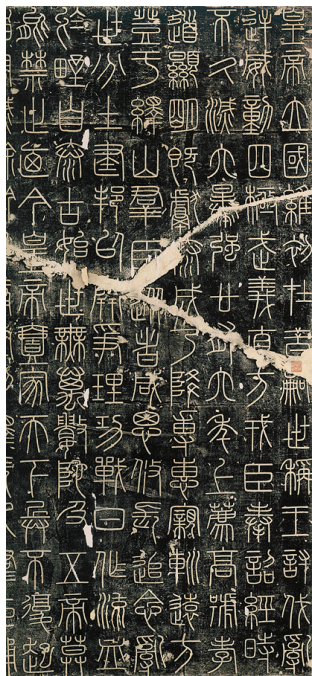 皇帝立國維初在昔嗣世稱王討伐亂
逆威動四極武義直方戎臣奉詔經時
不久滅六暴強廿有六年上薦高號孝
道顯明既獻泰成乃降專惠寴軔遠方
登于繹山群臣從者咸思攸長追念亂
世分土建邦以開爭理功戰日作流血
於野自泰古始世無萬數陀及五帝莫
能禁止廼今皇帝壹家天下兵不復起